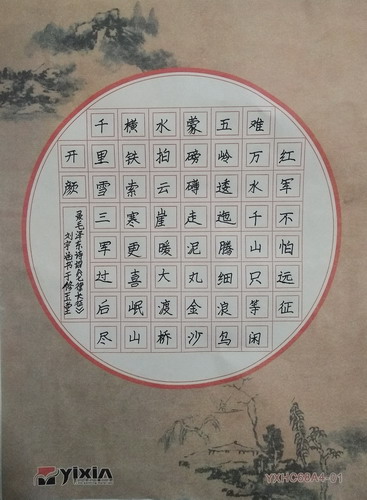 红军不怕远征
难万水千山只等闲
五岭逶迤腾细浪乌
蒙磅礴走泥丸金沙
水拍云崖暖大渡桥
横铁索寒更喜岷山
千里雪三军过后尽
开颜
录毛泽东诗词《七律长征》
刘宇 书于 玉堂
YIXIA
YXHC68A4-01